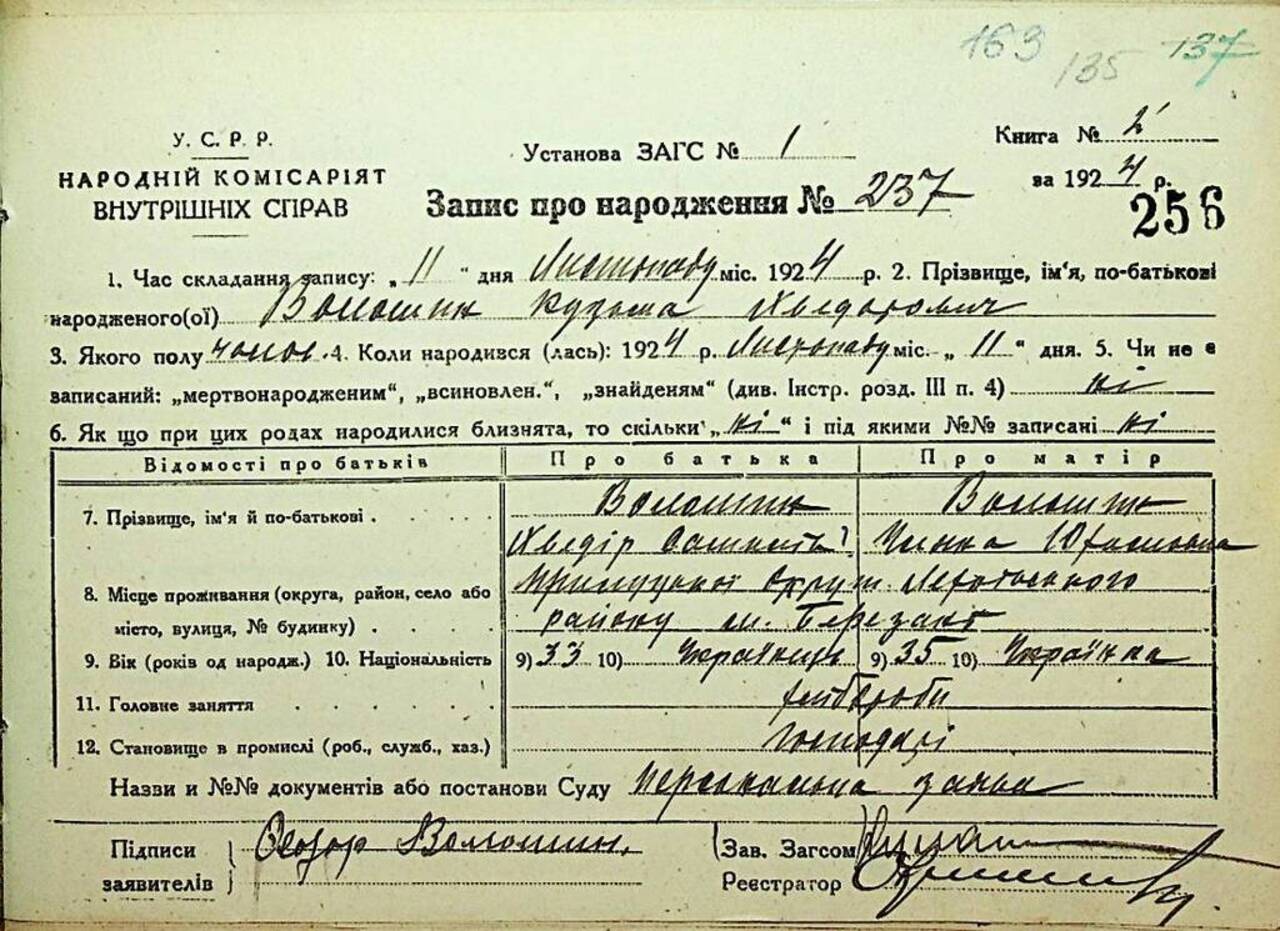 163 135 137
У. С. Р. Р.
НАРОДНІЙ КОМІСАРІЯТ
ВНУТРІШНІХ СПРАВ
Установа ЗАГС № 1
Запис про народження № 237
Книга № 2
за 1924 р.
256
1. Час складання запису: „11“ дня Листопаду міс. 1924 р. 2. Прізвище, ім'я, по-батькові
народженого(ої) Волошин Кузьма Хведорович
3. Якого полу чолов. 4. Коли народився (лась): 1924 р. Листопаду міс. „11“ дня. 5. Чи не є
записаний: „мертвонародженим“, „всиновлен.“, „знайденям“ (див. Інстр. розд. III п. 4) ні
6. Як що при цих родах народилися близнята, то скільки „ні“ і під якими №№ записані ні
Відомості про батьків Про батька Про матір
7. Прізвище, ім'я й по-батькові . Волошин Волошин
Хведір Чинка
8. Місце проживання (округа, район, село або Прилуцької Округи
місто, вулиця, № будинку) . району м. Березань
9. Вік (років од народж.) 10. Національність 9) 33 10) Українець 9) 35 10) Українка
11. Головне заняття хліборобы
12. Становище в промислі (роб., служб., хаз.) Господарі
Назви и №№ документів або постанови Суду персональна заява
Підписи заявителів Федор Волошин.
Зав. Загсом
Реєстратор